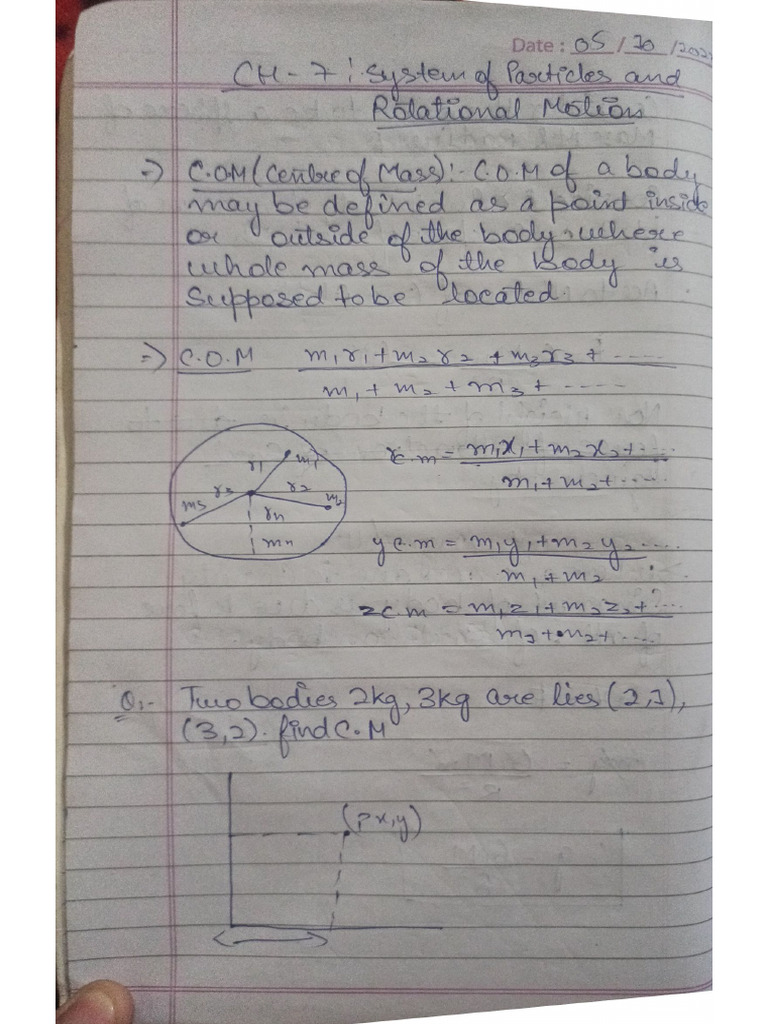 Date : 05 / 10 / 202
CH - 7 : System of Particles and
Rotational Motion
=> C.O.M (Centre of Mass) :- C.O.M of a body
may be defined as a point inside
or outside of the body where
whole mass of the body is
supposed to be located.
=> C.O.M m₁r₁ + m₂r₂ + m₃r₃ + .....
m₁ + m₂ + m₃ + ----
r₁ m₁
m₃ r₃ r₂ m₂
rn
mn
x c.m = m₁x₁ + m₂x₂ + ...
m₁ + m₂ + ....
y c.m = m₁y₁ + m₂y₂ ....
m₁ + m₂
z c.m = m₁z₁ + m₂z₂ + ...
m₁ + m₂ + ....
Q:- Two bodies 2kg, 3kg are lies (2,1),
(3,2). find C.M
(P x,y)